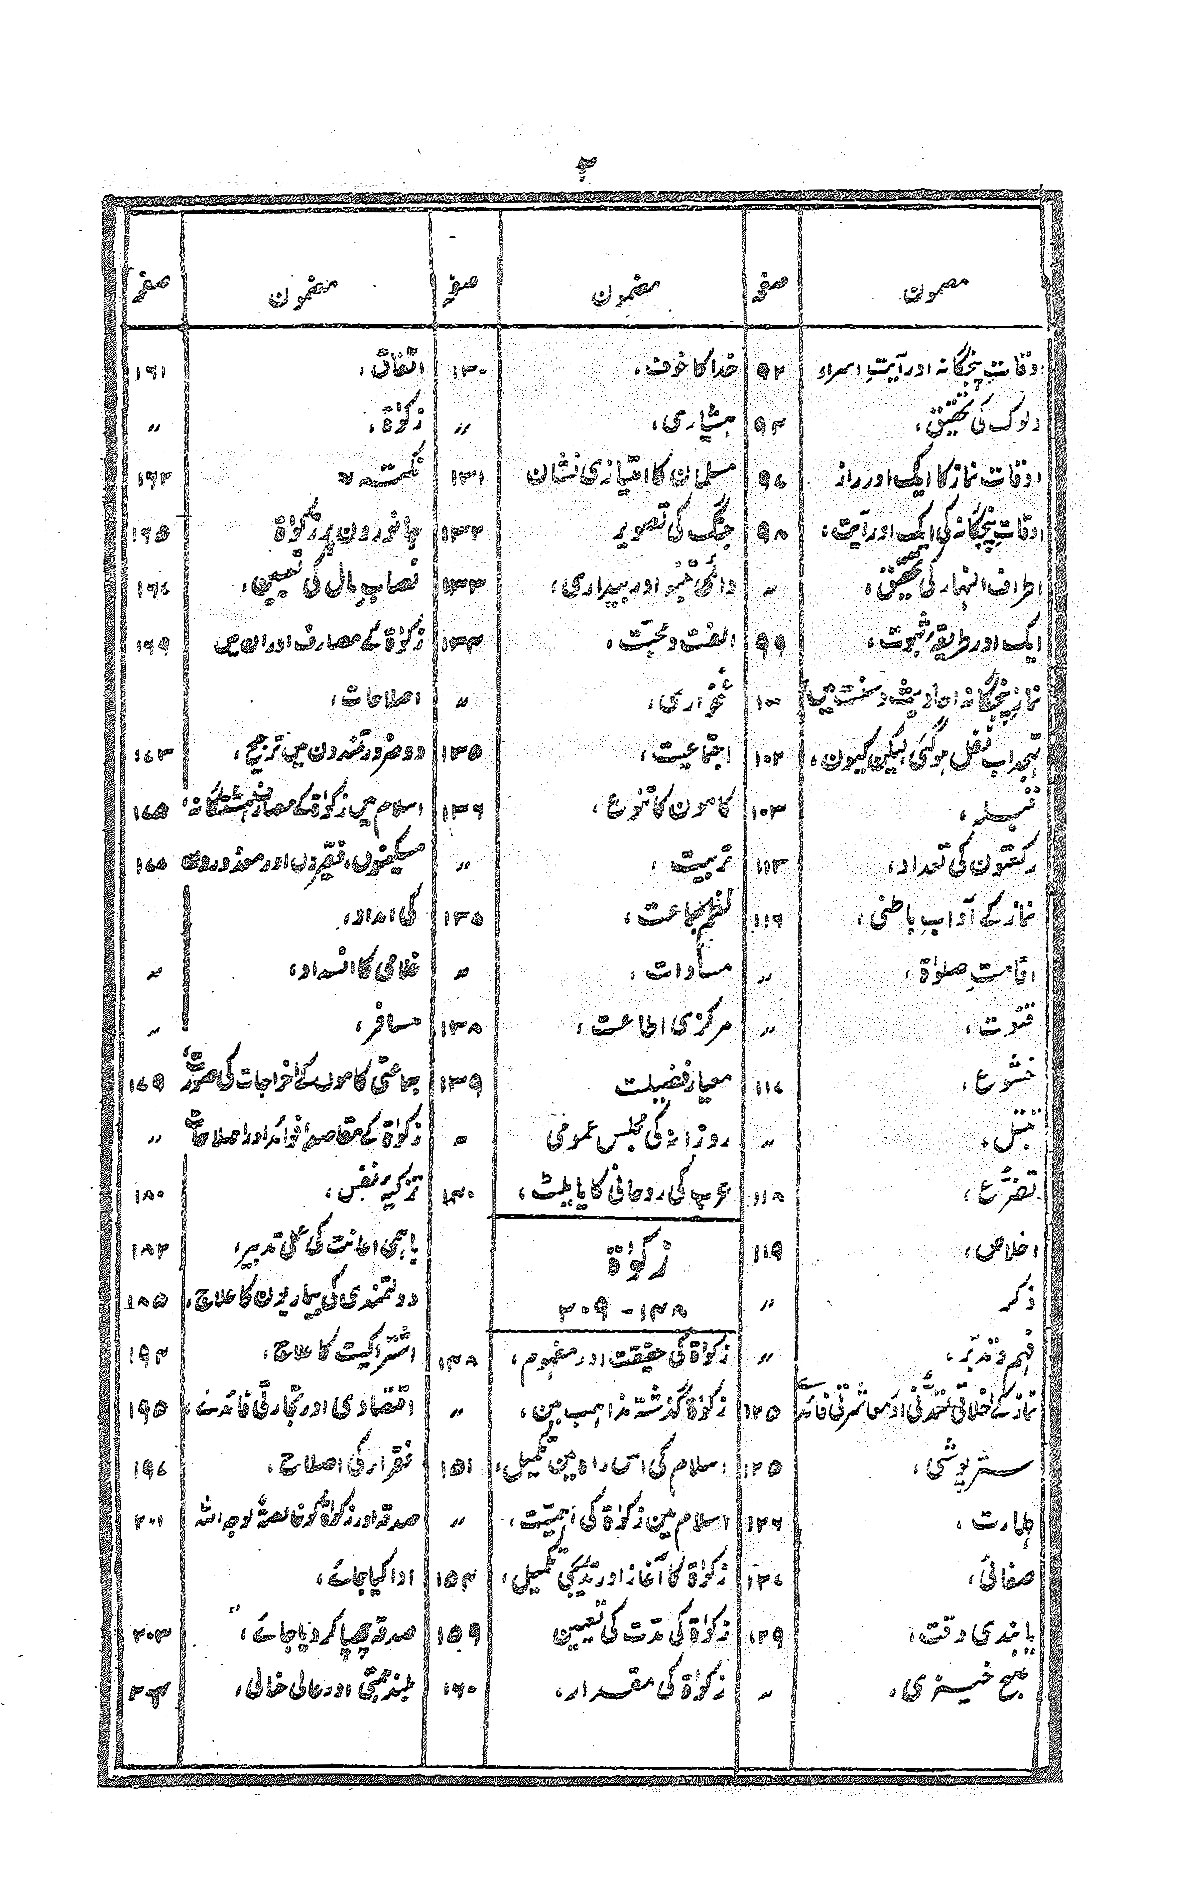 ۳
مضمون صفحہ مضمون صفحہ مضمون صفحہ
اوقاتِ پنجگانہ اور آیتِ اسراء ۹۲ خدا کا خوف، ۱۳۰ اتفاق، ۱۶۱
دلوک کی تحقیق، ۹۴ ہشیاری، 〃 زکوٰۃ، 〃
اوقات نماز کا ایک اور راز ۹۷ مسلمان کا امتیازی نشان ۱۳۱ نکتہ ۱۶۳
اوقاتِ پنجگانہ کی ایک اور آیت، ۹۸ جنگ کی تصویر ۱۳۲ جانورون پر زکوٰۃ ۱۶۵
اطراف النہار کی تحقیق، 〃 دائمی تنبہ اور بیداری، ۱۳۳ نصابِ مال کی تعیین، ۱۶۷
ایک اور طریقۂ ثبوت، ۹۹ الفت و محبت، ۱۳۴ زکوٰۃ کے مصارف اور ان میں ۱۶۹
نماز پنجگانہ احادیث و سنت میں ۱۰۰ غمخواری، 〃 اصلاحات،
تہجد اب نفل ہوگئی لیکن کیون، ۱۰۲ اجتماعیت، ۱۳۵ دو ضرورتمندون میں ترجیح، ۱۷۳
قبلہ، ۱۰۳ کامون کا تنوع، ۱۳۶ اسلام میں زکوٰۃ کے مصارفِ ہشتگانہ ۱۷۵
رکعتون کی تعداد، ۱۱۳ تربیت، 〃 مسکینوں، فقیروں اور معذوروں ۱۷۵
نماز کے آدابِ باطنی، ۱۱۶ نظمِ جماعت، ۱۳۷ کی امداد،
اقامتِ صلوٰۃ، 〃 مساوات، 〃 غلامی کا انسداد، 〃
قنوت، 〃 مرکزی اطاعت، ۱۳۸ مسافر، 〃
خشوع، ۱۱۷ معیارِ فضیلت ۱۳۹ جماعتی کاموں کے اخراجات کی صورت ۱۷۹
تبتل، 〃 روزانہ کی مجلس عمومی 〃 زکوٰۃ کے مقاصد، فوائد اور اصلاحات 〃
تضرع، ۱۱۸ عرب کی روحانی کایا پلٹ، ۱۴۰ تزکیۂ نفس، ۱۸۰
اخلاص، ۱۱۹ زکوٰۃ باہمی اعانت کی عملی تدبیر، ۱۸۲
ذکر 〃 ۱۴۸ - ۲۰۹ دولتمندی کی بیماریون کا علاج، ۱۸۵
فہم و تدبر، 〃 زکوٰۃ کی حقیقت اور مفہوم، ۱۴۸ اشتراکیت کا علاج، ۱۹۴
نماز کے اخلاقی تمدنی اور معاشرتی فائدے ۱۲۵ زکوٰۃ گذشتہ مذاہب مین، 〃 اقتصادی اور تجارتی فائدے، ۱۹۵
ستر پوشی، ۱۲۵ اسلام کی اس راہ مین تکمیل، ۱۵۱ فقراء کی اصلاح، ۱۹۷
طہارت، ۱۲۶ اسلام مین زکوٰۃ کی اہمیت، 〃 صدقہ اور زکوٰۃ کو خالصۃً لوجہ اللہ ۲۰۱
صفائی، ۱۲۷ زکوٰۃ کا آغاز اور تدریجی تکمیل، ۱۵۴ ادا کیا جائے،
پابندی وقت، ۱۲۹ زکوٰۃ کی مدت کی تعیین ۱۵۹ صدقہ چھپا کر دیا جائے، ۲۰۳
صبح خیزی، 〃 زکوٰۃ کی مقدار، ۱۶۰ بلند ہمتی اور عالی خیالی،